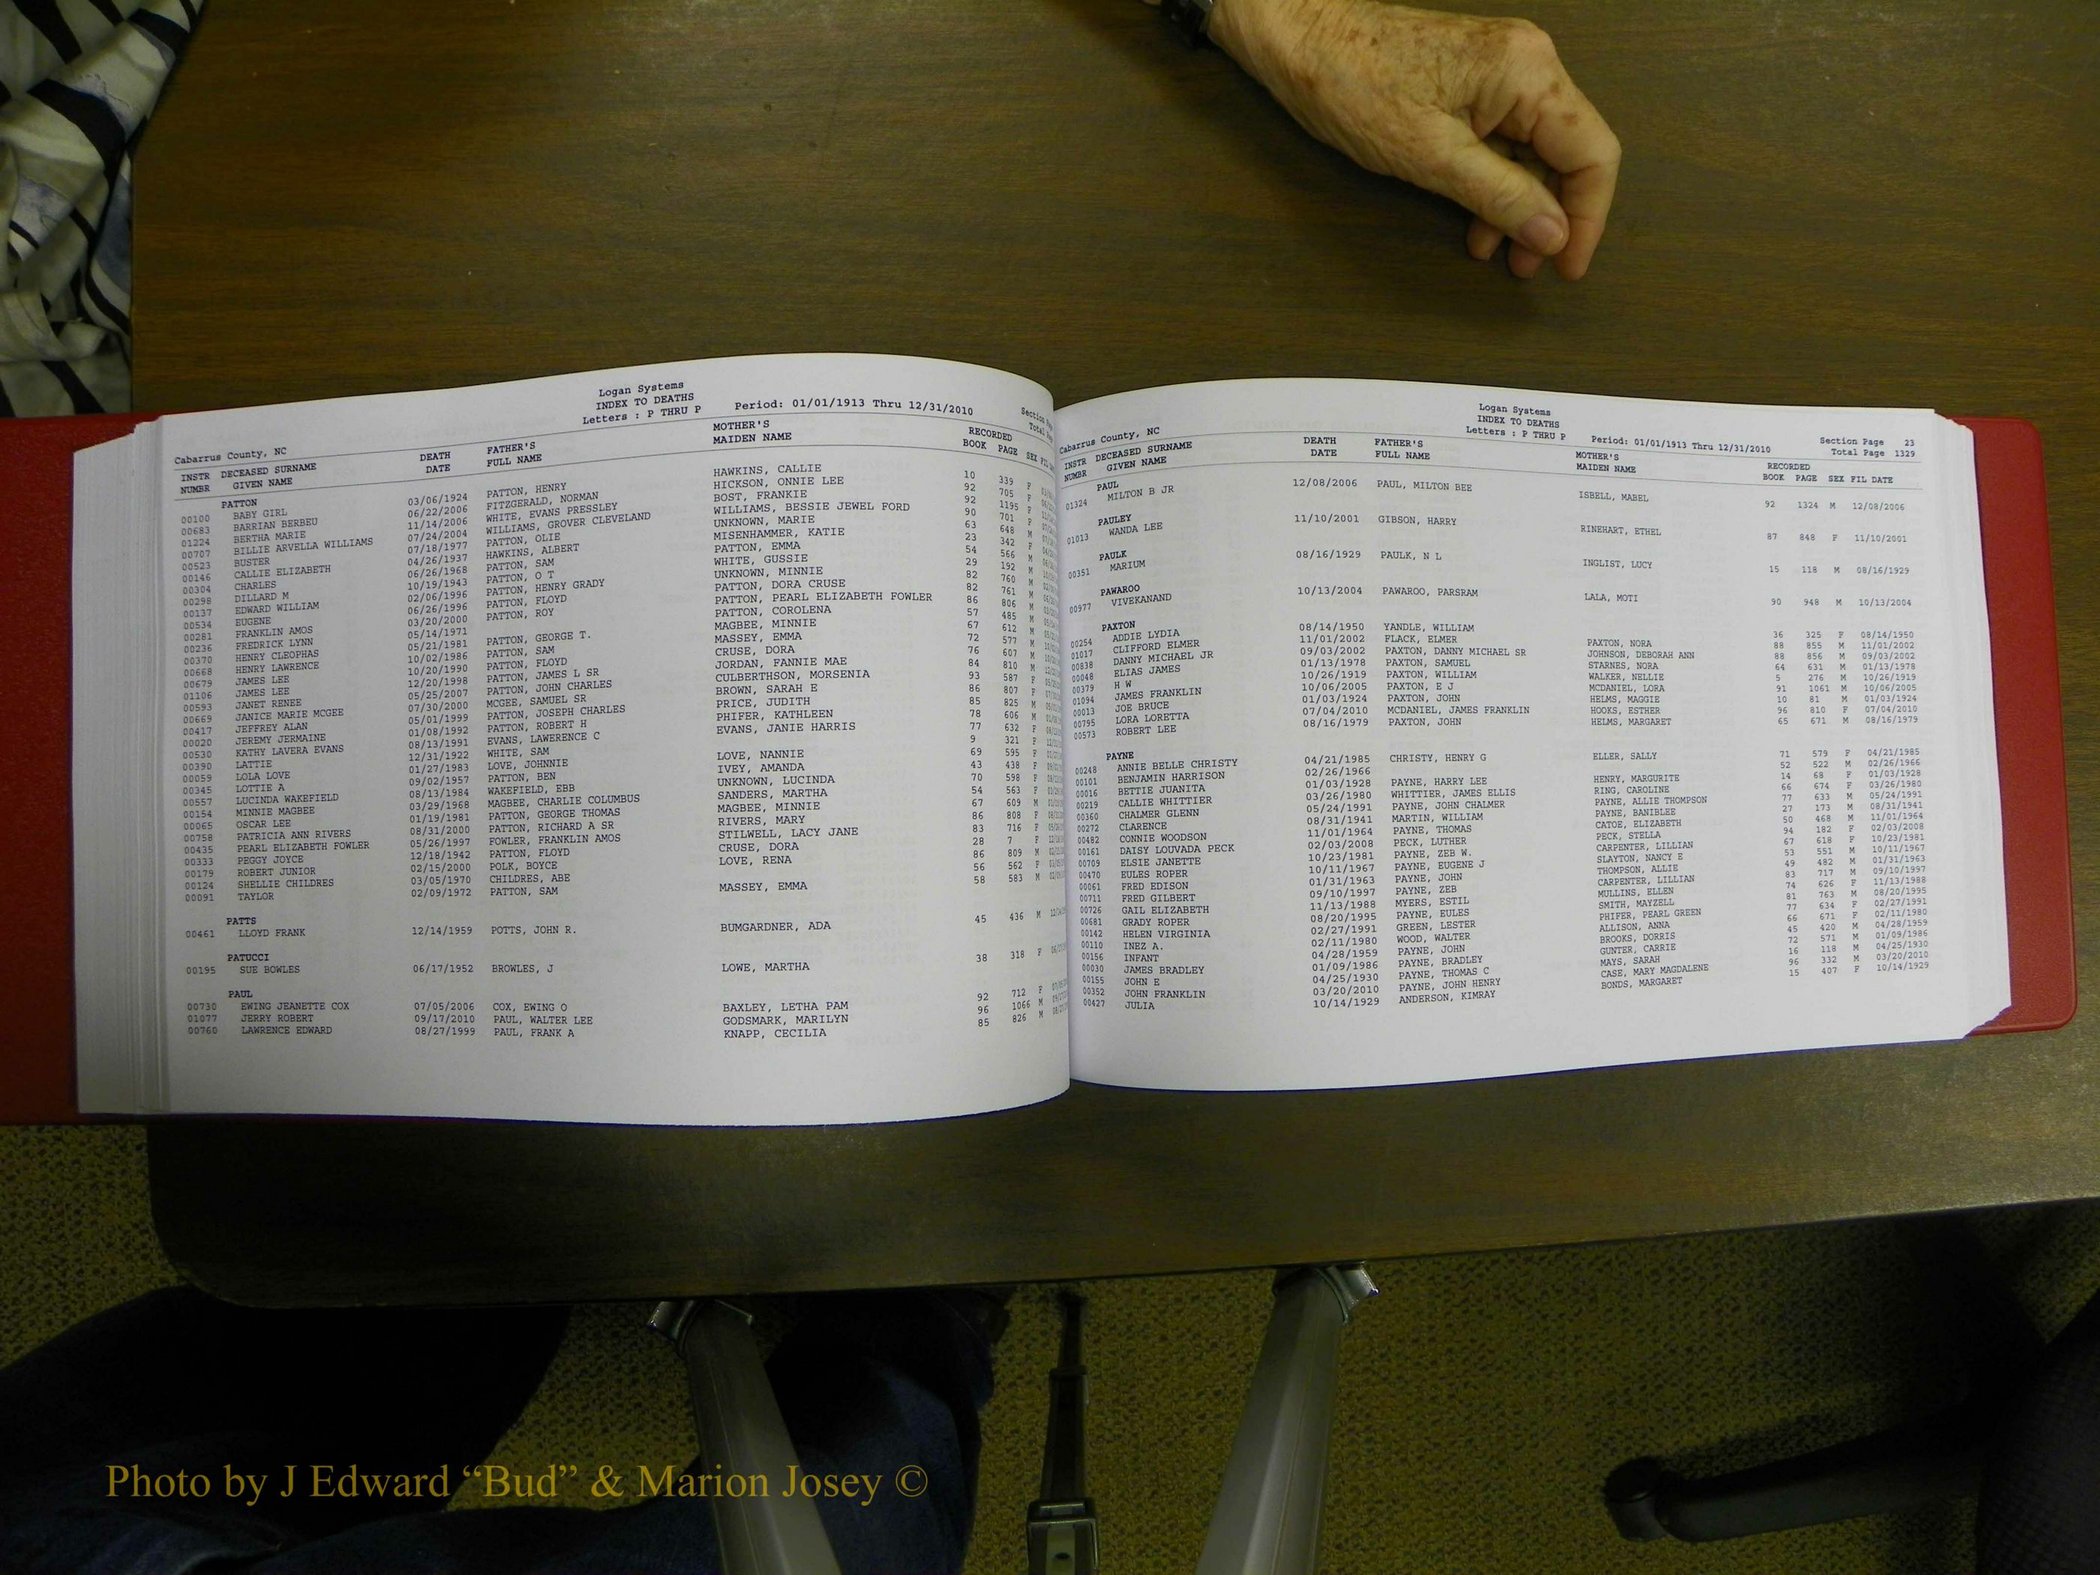 Logan Systems
INDEX TO DEATHS
Letters : P THRU P Period: 01/01/1913 Thru 12/31/2010
Cabarrus County, NC
INSTR NUMBR DECEASED SURNAME GIVEN NAME DEATH DATE FATHER'S FULL NAME MOTHER'S MAIDEN NAME RECORDED BOOK PAGE SEX FIL
PATTON
00100 BABY GIRL 03/06/1924 PATTON, HENRY HAWKINS, CALLIE 10 339 F
00683 BARRIAN BERBEU 06/22/2006 FITZGERALD, NORMAN HICKSON, ONNIE LEE 92 705 F
01224 BERTHA MARIE 11/14/2006 WHITE, EVANS PRESSLEY BOST, FRANKIE 92 1195 F
00707 BILLIE ARVELLA WILLIAMS 07/24/2004 WILLIAMS, GROVER CLEVELAND WILLIAMS, BESSIE JEWEL FORD 90 701 F
00523 BUSTER 07/18/1977 PATTON, OLIE UNKNOWN, MARIE 63 648 M
00146 CALLIE ELIZABETH 04/26/1937 HAWKINS, ALBERT MISENHAMMER, KATIE 23 342 F
00304 CHARLES 06/26/1968 PATTON, SAM PATTON, EMMA 54 566 M
00298 DILLARD M 10/19/1943 PATTON, O T WHITE, GUSSIE 29 192 M
00137 EDWARD WILLIAM 02/06/1996 PATTON, HENRY GRADY UNKNOWN, MINNIE 82 760 M
00534 EUGENE 06/26/1996 PATTON, FLOYD PATTON, DORA CRUSE 82 761 M
00281 FRANKLIN AMOS 03/20/2000 PATTON, ROY PATTON, PEARL ELIZABETH FOWLER 86 806 M
00236 FREDRICK LYNN 05/14/1971 PATTON, COROLENA 57 485 M
00370 HENRY CLEOPHAS 05/21/1981 PATTON, GEORGE T. MAGBEE, MINNIE 67 612 M
00668 HENRY LAWRENCE 10/02/1986 PATTON, SAM MASSEY, EMMA 72 577 M
00679 JAMES LEE 10/20/1990 PATTON, FLOYD CRUSE, DORA 76 607 M
01106 JAMES LEE 12/20/1998 PATTON, JAMES L SR JORDAN, FANNIE MAE 84 810 M
00593 JANET RENEE 05/25/2007 PATTON, JOHN CHARLES CULBERTHSON, MORSENIA 93 587 F
00669 JANICE MARIE MCGEE 07/30/2000 MCGEE, SAMUEL SR BROWN, SARAH E 86 807 F
00417 JEFFREY ALAN 05/01/1999 PATTON, JOSEPH CHARLES PRICE, JUDITH 85 825 M
00020 JEREMY JERMAINE 01/08/1992 PATTON, ROBERT H PHIFER, KATHLEEN 78 606 M
00530 KATHY LAVERA EVANS 08/13/1991 EVANS, LAWERENCE C EVANS, JANIE HARRIS 77 632 F
00390 LATTIE 12/31/1922 WHITE, SAM 9 321 F
00059 LOLA LOVE 01/27/1983 LOVE, JOHNNIE LOVE, NANNIE 69 595 F
00345 LOTTIE A 09/02/1957 PATTON, BEN IVEY, AMANDA 43 438 F
00557 LUCINDA WAKEFIELD 08/13/1984 WAKEFIELD, EBB UNKNOWN, LUCINDA 70 598 F
00154 MINNIE MAGBEE 03/29/1968 MAGBEE, CHARLIE COLUMBUS SANDERS, MARTHA 54 563 F
00065 OSCAR LEE 01/19/1981 PATTON, GEORGE THOMAS MAGBEE, MINNIE 67 609 M
00758 PATRICIA ANN RIVERS 08/31/2000 PATTON, RICHARD A SR RIVERS, MARY 86 808 F
00435 PEARL ELIZABETH FOWLER 05/26/1997 FOWLER, FRANKLIN AMOS STILWELL, LACY JANE 83 716 F
00333 PEGGY JOYCE 12/18/1942 PATTON, FLOYD CRUSE, DORA 28 7 F
00179 ROBERT JUNIOR 02/15/2000 POLK, BOYCE LOVE, RENA 86 809 M
00124 SHELLIE CHILDRES 03/05/1970 CHILDRES, ABE 56 562 F
00091 TAYLOR 02/09/1972 PATTON, SAM MASSEY, EMMA 58 583 M
PATTS
00461 LLOYD FRANK 12/14/1959 POTTS, JOHN R. BUMGARDNER, ADA 45 436 M
PATUCCI
00195 SUE BOWLES 06/17/1952 BROWLES, J LOWE, MARTHA 38 318 F
PAUL
00730 EWING JEANETTE COX 07/05/2006 COX, EWING O BAXLEY, LETHA PAM 92 712 F
01077 JERRY ROBERT 09/17/2010 PAUL, WALTER LEE GODSMARK, MARILYN 96 1066 M
00760 LAWRENCE EDWARD 08/27/1999 PAUL, FRANK A KNAPP, CECILIA 85 826 M
Logan Systems
INDEX TO DEATHS
Letters : P THRU P Period: 01/01/1913 Thru 12/31/2010
Section Page 23
Total Page 1329
Cabarrus County, NC
INSTR NUMBR DECEASED SURNAME GIVEN NAME DEATH DATE FATHER'S FULL NAME MOTHER'S MAIDEN NAME RECORDED BOOK PAGE SEX FIL DATE
PAUL
01324 MILTON B JR 12/08/2006 PAUL, MILTON BEE ISBELL, MABEL 92 1324 M 12/08/2006
PAULEY
01013 WANDA LEE 11/10/2001 GIBSON, HARRY RINEHART, ETHEL 87 848 F 11/10/2001
PAULK
00351 MARIUM 08/16/1929 PAULK, N L INGLIST, LUCY 15 118 M 08/16/1929
PAWAROO
00977 VIVEKANAND 10/13/2004 PAWAROO, PARSRAM LALA, MOTI 90 948 M 10/13/2004
PAXTON
00254 ADDIE LYDIA 08/14/1950 YANDLE, WILLIAM 36 325 F 08/14/1950
01017 CLIFFORD ELMER 11/01/2002 FLACK, ELMER PAXTON, NORA 88 855 M 11/01/2002
00838 DANNY MICHAEL JR 09/03/2002 PAXTON, DANNY MICHAEL SR JOHNSON, DEBORAH ANN 88 856 M 09/03/2002
00048 ELIAS JAMES 01/13/1978 PAXTON, SAMUEL STARNES, NORA 64 631 M 01/13/1978
00379 H W 10/26/1919 PAXTON, WILLIAM WALKER, NELLIE 5 276 M 10/26/1919
01094 JAMES FRANKLIN 10/06/2005 PAXTON, E J MCDANIEL, LORA 91 1061 M 10/06/2005
00013 JOE BRUCE 01/03/1924 PAXTON, JOHN HELMS, MAGGIE 10 81 M 01/03/1924
00795 LORA LORETTA 07/04/2010 MCDANIEL, JAMES FRANKLIN HOOKS, ESTHER 96 810 F 07/04/2010
00573 ROBERT LEE 08/16/1979 PAXTON, JOHN HELMS, MARGARET 65 671 M 08/16/1979
PAYNE
00248 ANNIE BELLE CHRISTY 04/21/1985 CHRISTY, HENRY G ELLER, SALLY 71 579 F 04/21/1985
00101 BENJAMIN HARRISON 02/26/1966 52 522 M 02/26/1966
00016 BETTIE JUANITA 01/03/1928 PAYNE, HARRY LEE HENRY, MARGURITE 14 68 F 01/03/1928
00219 CALLIE WHITTIER 03/26/1980 WHITTIER, JAMES ELLIS RING, CAROLINE 66 674 F 03/26/1980
00360 CHALMER GLENN 05/24/1991 PAYNE, JOHN CHALMER PAYNE, ALLIE THOMPSON 77 633 M 05/24/1991
00272 CLARENCE 08/31/1941 MARTIN, WILLIAM PAYNE, BANIBLEE 27 173 M 08/31/1941
00482 CONNIE WOODSON 11/01/1964 PAYNE, THOMAS CATOE, ELIZABETH 50 468 M 11/01/1964
00161 DAISY LOUVADA PECK 02/03/2008 PECK, LUTHER PECK, STELLA 94 182 F 02/03/2008
00709 ELSIE JANETTE 10/23/1981 PAYNE, ZEB W. CARPENTER, LILLIAN 67 618 F 10/23/1981
00470 EULES ROPER 10/11/1967 PAYNE, EUGENE J SLAYTON, NANCY E 53 551 M 10/11/1967
00061 FRED EDISON 01/31/1963 PAYNE, JOHN THOMPSON, ALLIE 49 482 M 01/31/1963
00711 FRED GILBERT 09/10/1997 PAYNE, ZEB CARPENTER, LILLIAN 83 717 M 09/10/1997
00726 GAIL ELIZABETH 11/13/1988 MYERS, ESTIL MULLINS, ELLEN 74 626 F 11/13/1988
00681 GRADY ROPER 08/20/1995 PAYNE, EULES SMITH, MAYZELL 81 763 M 08/20/1995
00142 HELEN VIRGINIA 02/27/1991 GREEN, LESTER PHIFER, PEARL GREEN 77 634 F 02/27/1991
00110 INEZ A. 02/11/1980 WOOD, WALTER ALLISON, ANNA 66 671 F 02/11/1980
00156 INFANT 04/28/1959 PAYNE, JOHN BROOKS, DORRIS 45 420 M 04/28/1959
00030 JAMES BRADLEY 01/09/1986 PAYNE, BRADLEY GUNTER, CARRIE 72 571 M 01/09/1986
00155 JOHN E 04/25/1930 PAYNE, THOMAS C MAYS, SARAH 16 118 M 04/25/1930
00352 JOHN FRANKLIN 03/20/2010 PAYNE, JOHN HENRY CASE, MARY MAGDALENE 96 332 M 03/20/2010
00427 JULIA 10/14/1929 ANDERSON, KIMRAY BONDS, MARGARET 15 407 F 10/14/1929
Photo by J Edward “Bud” & Marion Josey ©